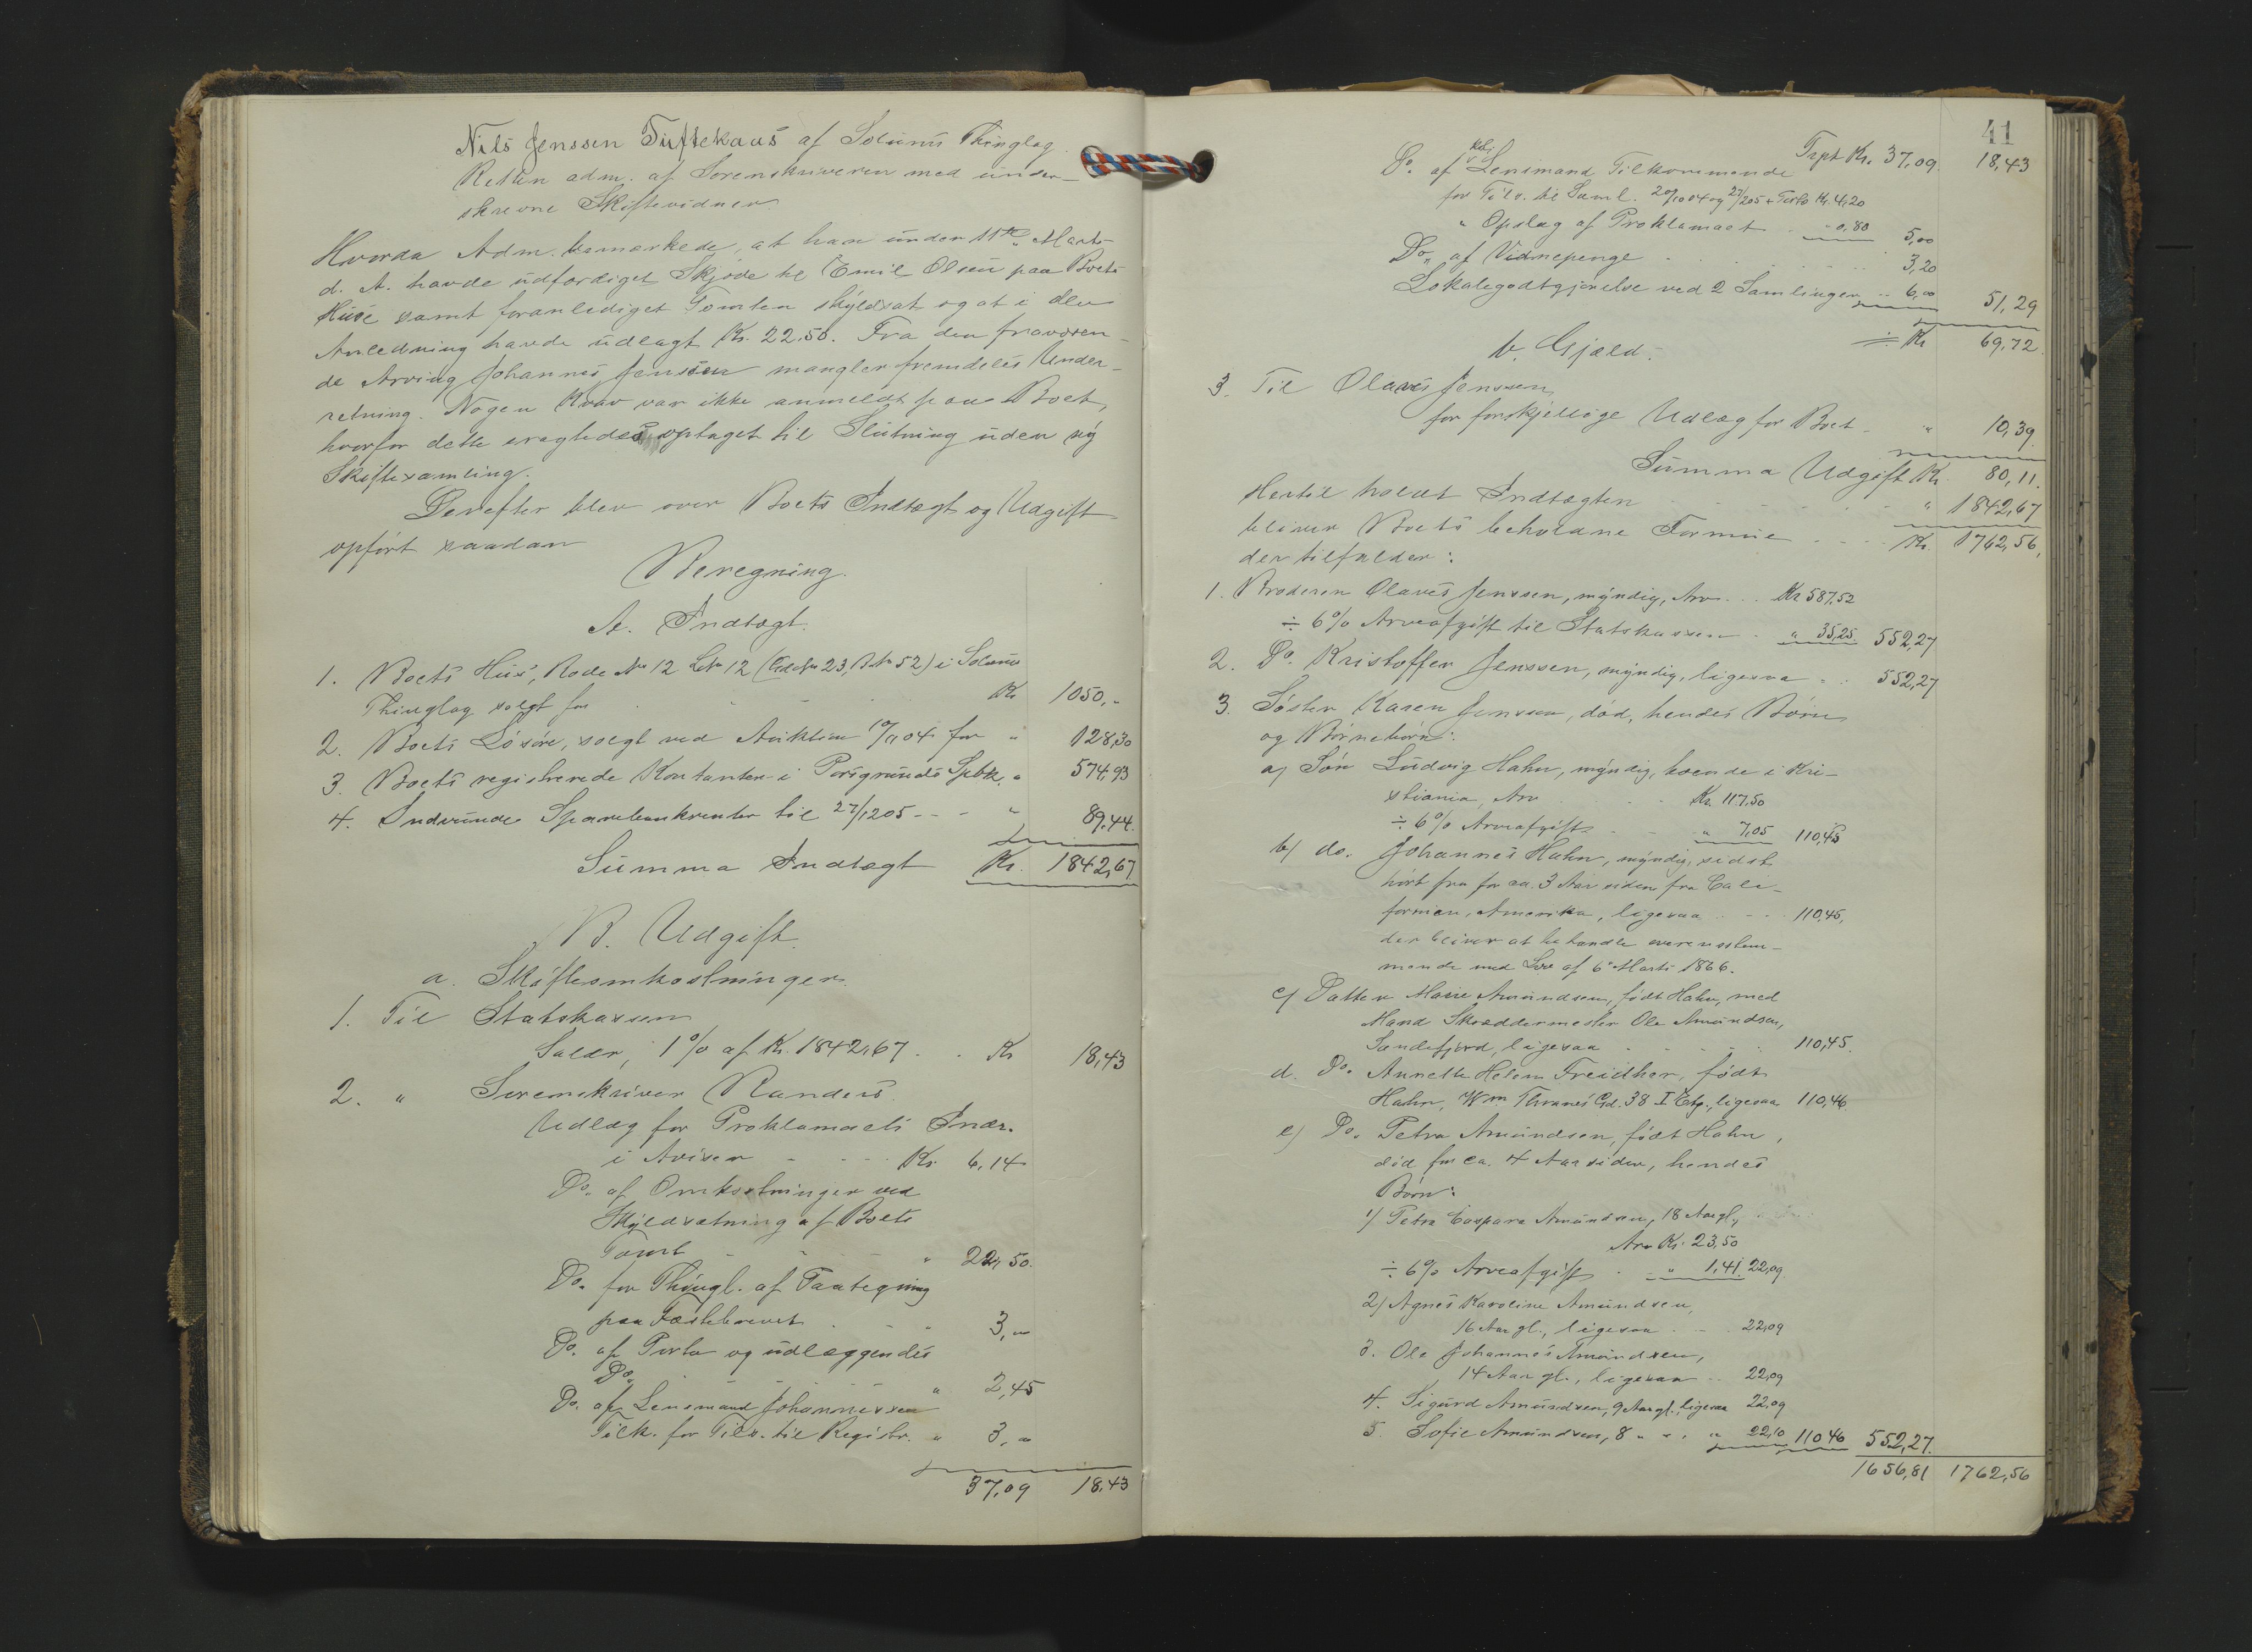 Nils Jenssen Tuftekaas af Solums Thinglag.
Retten adm. af Sorenskriveren med under-
skrevne Skiftevidner.
Hvorda Adm. bemærkede, at han under 11te Marts
d. A. havde udfærdiget Skjøde til Emil Olsen paa Boets
Huse samt foranlediget Tomten skyldsat og at i den
Anledning havde udlagt Kr. 22.50. Fra den fraværen-
de Arving Johannes Jenssen mangler fremdeles Under-
retning. Nogen Krav var ikke anmeldt paa Boet,
hvorfor dette eragtedes optaget til Slutning uden ny
Skiftesamling.
Derefter blev over Boets Indtægt og Udgift
opført saadan
Beregning.
A. Indtægt.
1. Boets Hus, Rode No 12 Lno 12 (Gdno 23, Bno 52) i Solums
Thinglag solgt for . . . Kr. 1050,-
2. Boets Løsøre, solgt ved Auktion for " 128,30
3. Boets registrerede Kontanter i Porsgrunds Spbk. " 574,93
4. Indvundne Sparebankrenter til 27/1205 - - - " 89,44.
Summa Indtægt Kr. 1842,67.
B. Udgift.
a. Skifteomkostninger.
1. Til Statskassen
Salær, 1% af Kr. 1842,67 . . Kr 18,43
2. " Sorenskriver Randers
Udlæg for Proklamaets Indr.
i Aviser - - - - Kr. 6,14
Do. af Omkostninger ved
Skyldsætning af Boets
Tomt - - - " 22,50.
Do. for Thingl. af Paategning
paa Fæstebrevet . - - 3,"
Do. af Porto og udlæggendes
Do. " 2,45
Do. af Lensmand Johannessen
Tilk. for Tilst. til Registr. " 3,"
37,09 18,43
41
Trpt Kr. 37,09. 18,43
Do. af Lensmand Tilkommende
for Tilst. til Saml. 20/1004 og 27/205 + Porto Kr. 4,20
" Opslag af Proklamaet - 0,80 5,00
Do. af Vidnepenge . . . 3,20
Lokalegodtgjørelse ved 2 Samlinger - 6,00 51,29
÷ Kr 69,72.
b. Gjæld.
3. Til Olaves Jenssen
for forskjellige Udlæg for Boet - " 10,39
Summa Udgift Kr. 80,11.
Hertil holdt Indtægten - - - " 1842,67
bliver Boets beholdne Formue . . . Kr. 1762,56,
der tilfalder:
1. Broderen Olaves Jenssen, myndig, Arv . . . Kr 587,52
÷ 6% Arveafgift til Statskassen . " 35,25. 552,27
2. Do. Kristoffer Jenssen, myndig, ligesaa - : 552,27
3. Søster Karen Jenssen, død, hendes Børn
og Børnebørn:
a) Søn Ludvig Hahn, myndig, boende i Kri-
stiania, Arv . . . Kr. 117,50
÷ 6% Arveafgift - - " 7,05 110,45
b) do. Johannes Hahn, myndig, sidst
hørt fra for ca. 3 Aar siden fra Cali-
fornien, Amerika, ligesaa - - - 110,45,
der bliver at behandle overensstem-
mende med Lov af 6te Marts 1866.
c) Datter Marie Amundsen, født Hahn, med
Mand Skræddermester Ole Amundsen,
Sandefjord, ligesaa - - - 110,45.
d. Do. Annette Helene Freidher, født
Hahn, Wm Thranes Gd. 38 I Etg., ligesaa 110,46
e) Do. Petra Amundsen, født Hahn,
død for ca. 4 Aar siden, hendes
Børn:
1) Petra Caspara Amundsen, 18 Aar gl.,
Arv Kr. 23,50
÷ 6% Arveafgift . - " 1,41. 22,09.
2) Agnes Karoline Amundsen,
16 Aar gl., ligesaa . - 22,09
3. Ole Johannes Amundsen,
14 Aar gl., ligesaa . . 22,09
4. Sigurd Amundsen, 9 Aar gl., ligesaa 22,09
5. Sofie Amundsen, 8 " " . " 22,10 110,46 552,27.
1656,81 1762,56